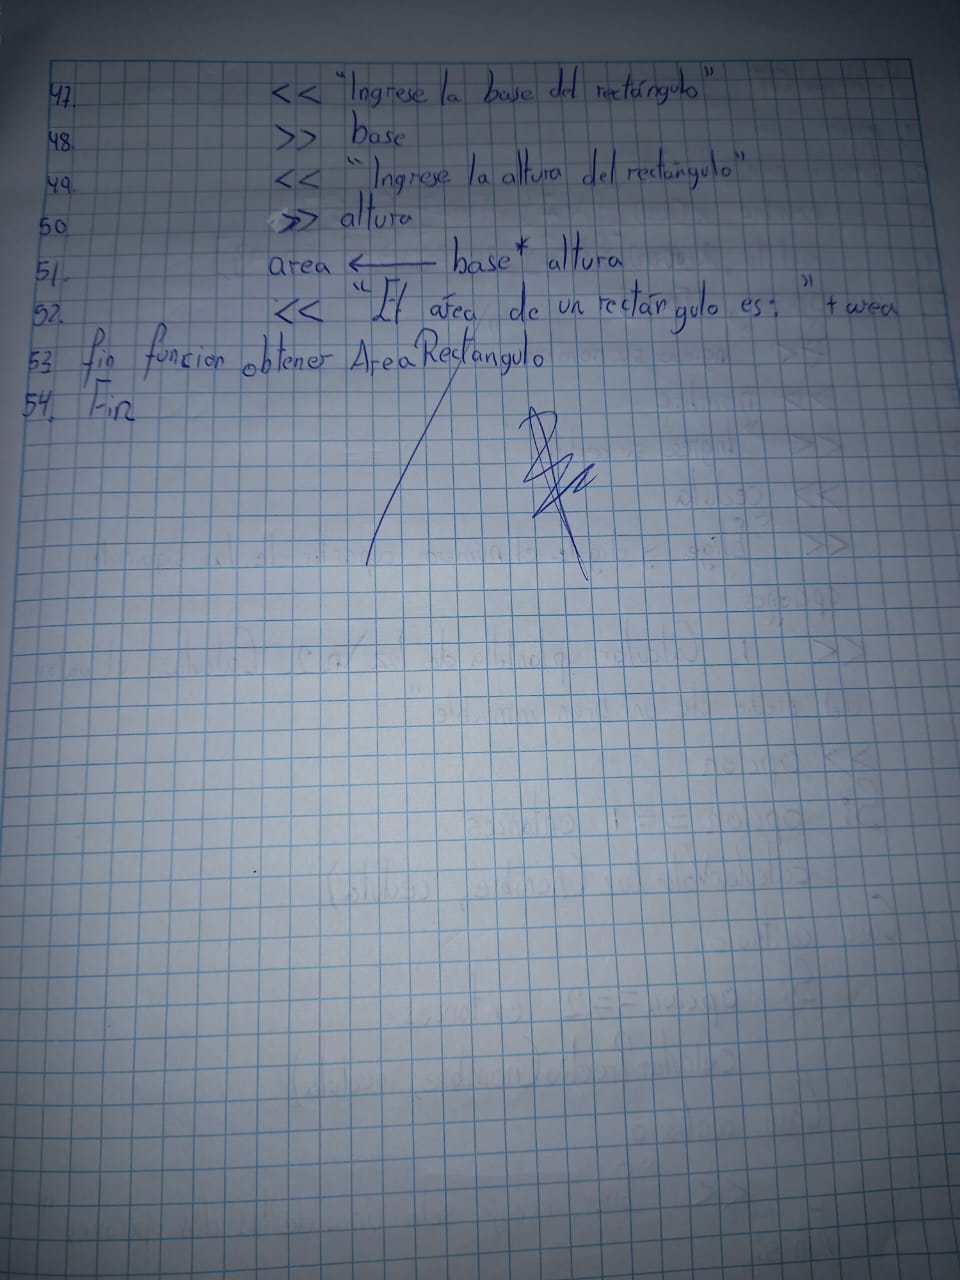 47. << "Ingrese la base del rectángulo"
48. >> base
49. << "Ingrese la altura del rectángulo"
50. >> altura
51. area ← base * altura
52. << "El area de un rectángulo es: " + area
53. fin funcion obtener AreaRectangulo
54. Fin